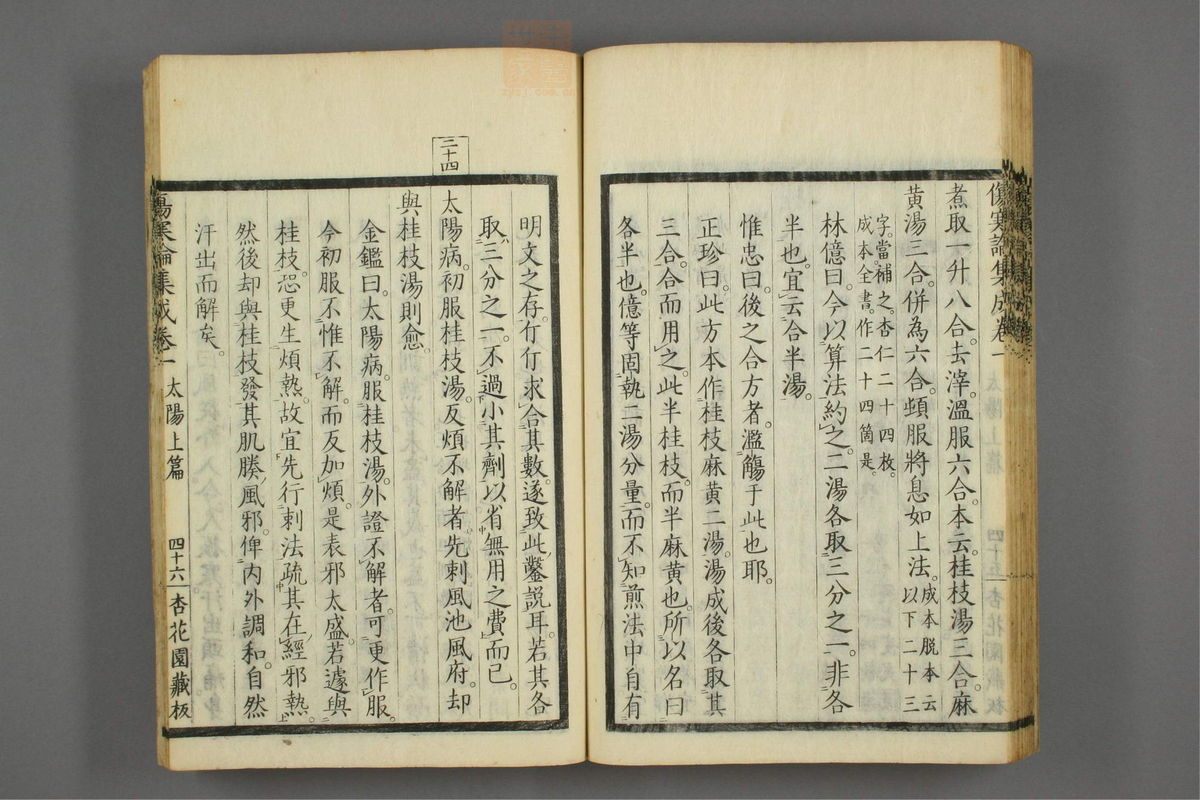 傷寒論集成卷一
煮取一升八合。去滓。溫服六合。本云。桂枝湯三合。麻
黃湯三合。併為六合。頓服。將息如上法。成本脫本云以下二十三
字。當補之。杏仁二十四枚。成本。全書。作二十四箇。是。
林億曰。今以算法約之。二湯各取三分之一。非各
半也。宜云合半湯。
惟忠曰。後之合方者。濫觴于此也耶。
正珍曰。此方本作桂枝麻黃二湯。湯成後各取其
三合。合而用之。此半桂枝。而半麻黃也。所以名曰
各半也。億等固執二湯分量。而不知煎法中自有
明文之存。仃仃求合其數。遂致此鑿說耳。若其各
取三分之一。不過小其劑。以省無用之費而已。
三十四
太陽病。初服桂枝湯。反煩不解者。先刺風池風府。却
與桂枝湯則愈。
金鑑曰。太陽病。服桂枝湯。外證不解者。可更作服。
今初服不惟不解。而反加煩。是表邪太盛。若遽與
桂枝。恐更生煩熱。故宜先行刺法。疏其在經邪熱。
然後却與桂枝。發其肌腠風邪。俾內外調和。自然
汗出而解矣。
傷寒論集成卷一 太陽上篇 四十六 杏花園藏板